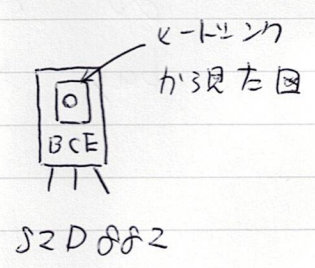 ヒートシンク
から見た図
BCE
S2D882